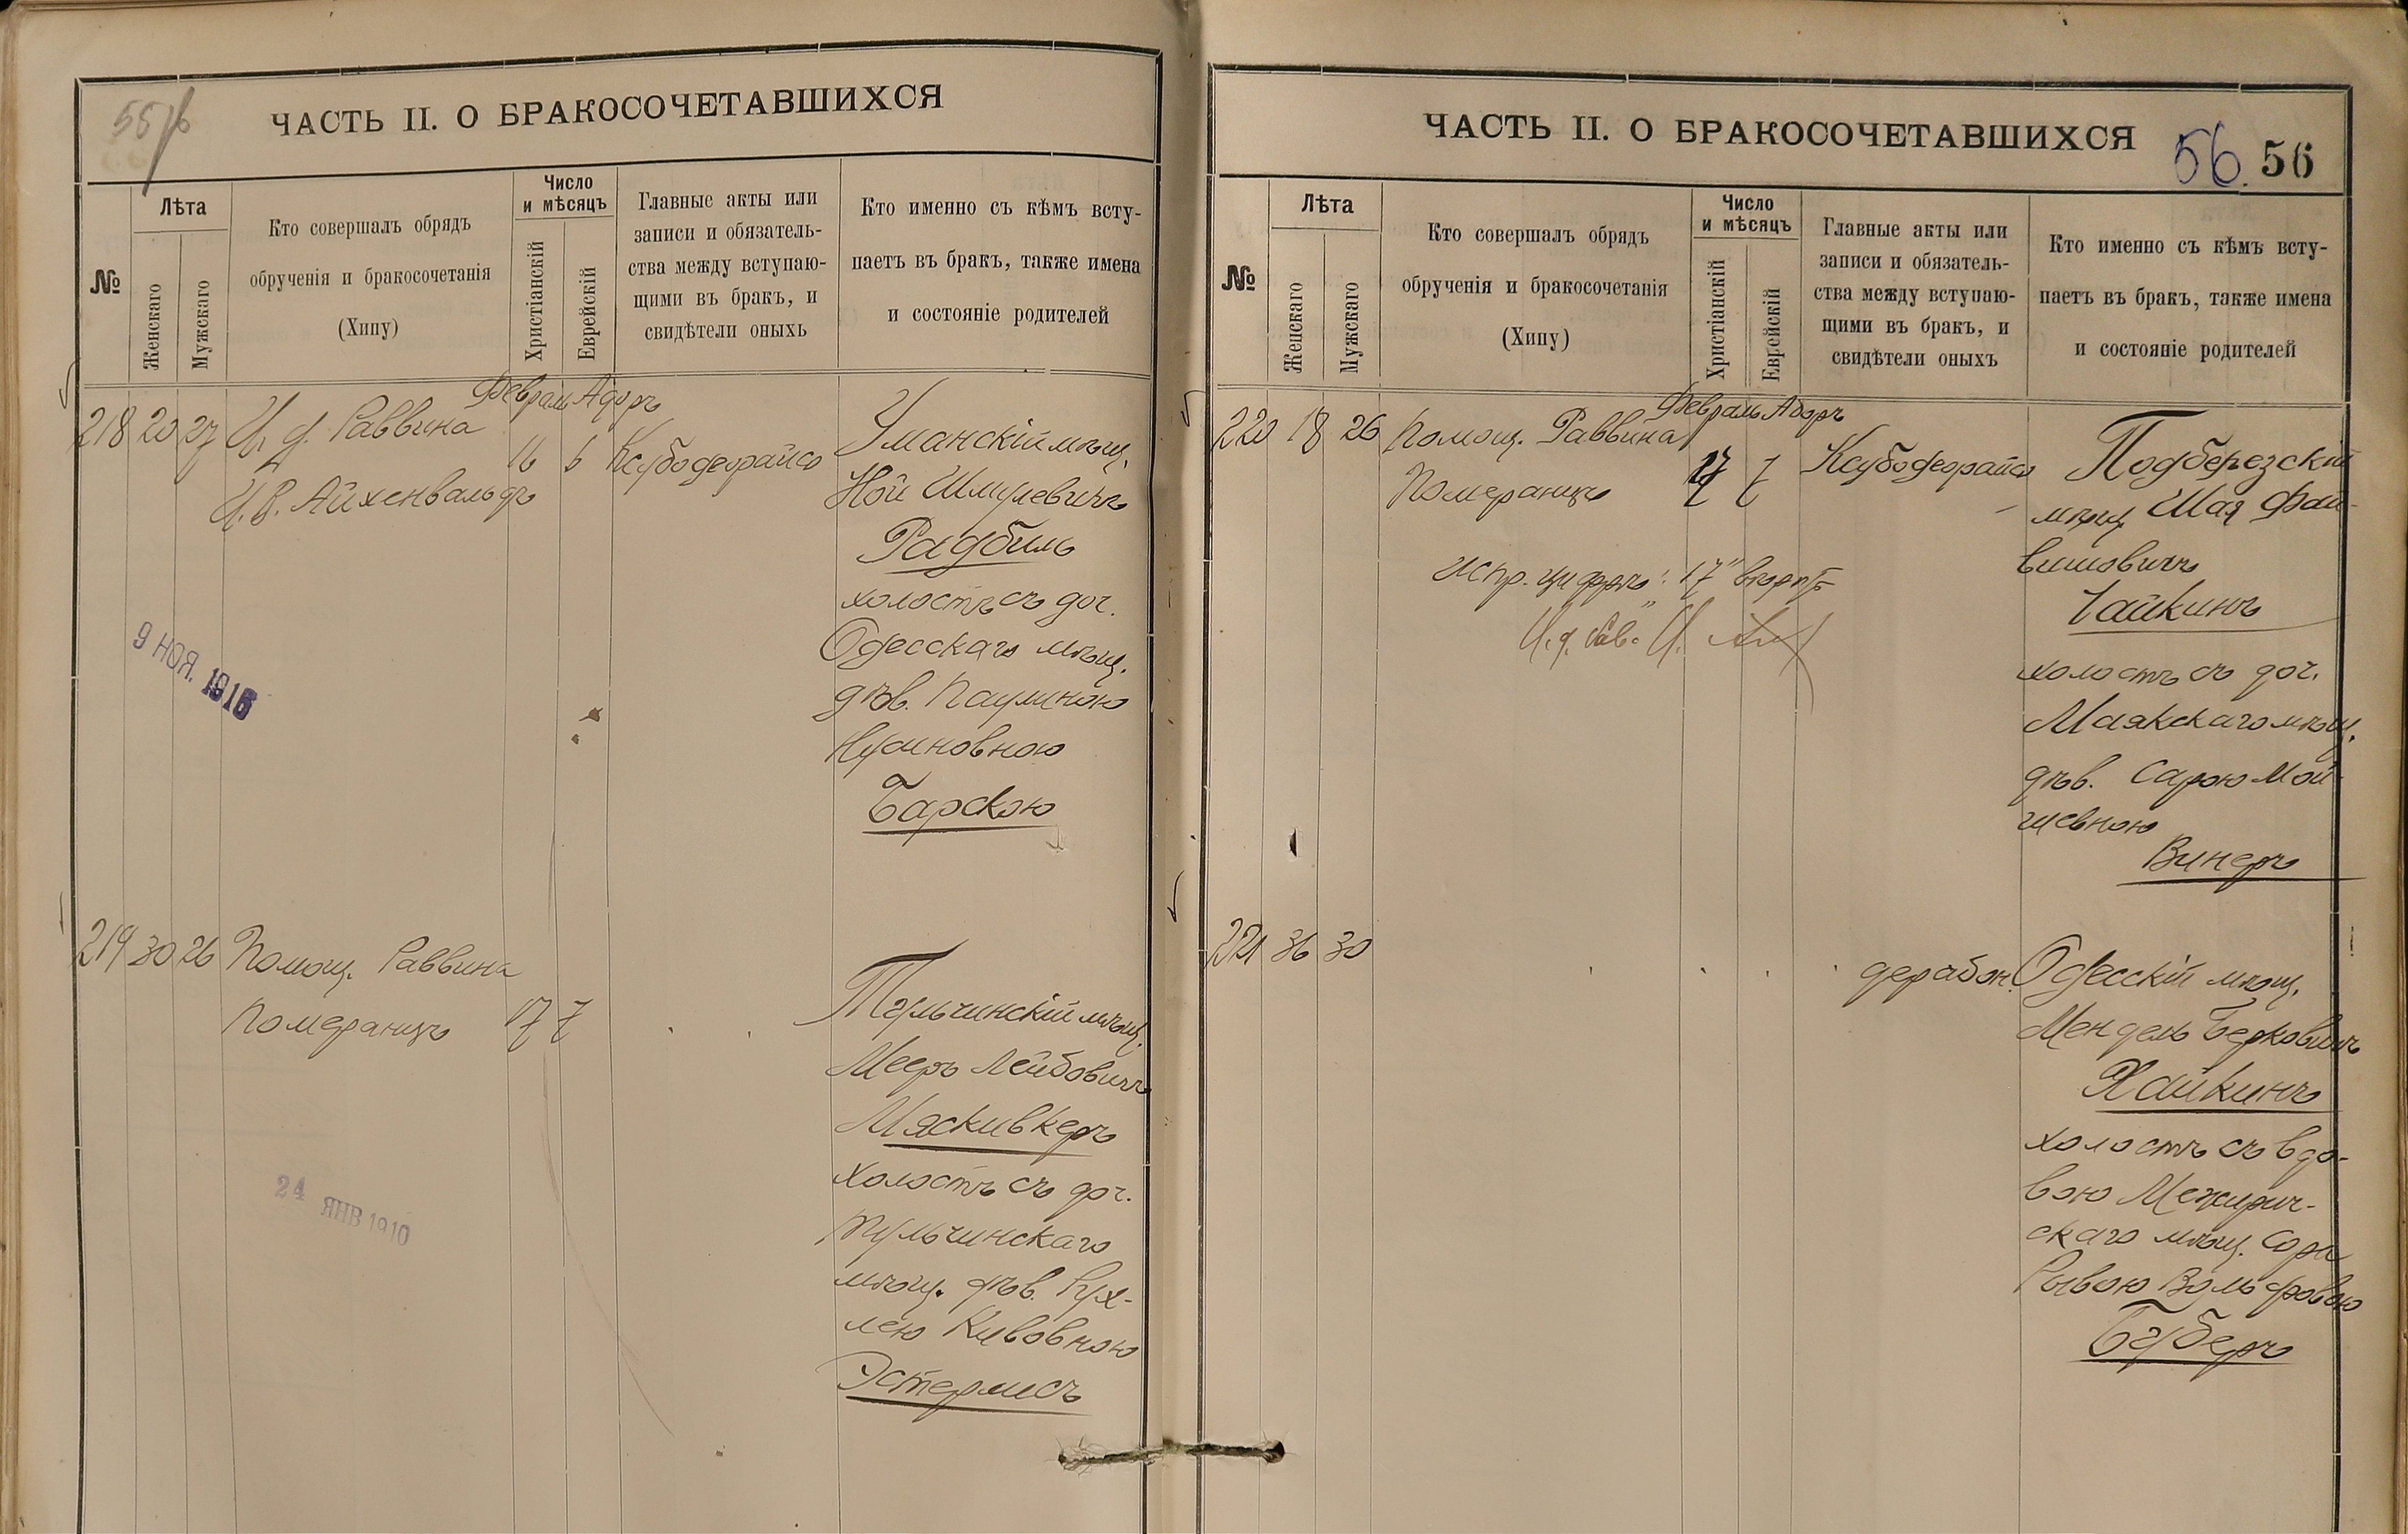 55/б
ЧАСТЬ II. О БРАКОСОЧЕТАВШИХСЯ
№
Лѣта
Женскаго
Мужскаго
Кто совершалъ обрядъ
обрученія и бракосочетанія
(Хипу)
Число
и мѣсяцъ
Христіанскій
Еврейскій
Главные акты или
записи и обязатель-
ства между вступаю-
щими въ бракъ, и
свидѣтели оныхъ
Кто именно съ кѣмъ всту-
паетъ въ бракъ, также имена
и состояніе родителей
Февраль Адаръ
218 20 27 И. д. Раввина
И. В. Айхенвальдъ
16 6 Ксубодеорайсо
Уманскій мѣщ.
Ной Шмулевичъ
Радбиль
холостъ съ доч.
Одесскаго мѣщ.
дѣв. Паулиною
Нусиновною
Барскою
9 НОЯ. 1915
219 30 26 Помощ. Раввина
Померанцъ 17 7
Тульчинскій мѣщ.
Мееръ Лейбовичъ
Мяскивкеръ
холостъ съ доч.
Тульчинскаго
мѣщ. дѣв. Рух-
лею Кивовною
Эстерлисъ
24 ЯНВ 1910
ЧАСТЬ II. О БРАКОСОЧЕТАВШИХСЯ
56. 56
№
Лѣта
Женскаго
Мужскаго
Кто совершалъ обрядъ
обрученія и бракосочетанія
(Хипу)
Число
и мѣсяцъ
Христіанскій
Еврейскій
Главные акты или
записи и обязатель-
ства между вступаю-
щими въ бракъ, и
свидѣтели оныхъ
Кто именно съ кѣмъ всту-
паетъ въ бракъ, также имена
и состояніе родителей
Февраль Адаръ
220 18 26 Помощ. Раввина
Померанцъ 17 7 Ксубодеорайсо
Испр. цифръ: "17" вѣрить
И. д. Рав. И.
Подберезскій
мѣщ. Шая Фай-
вишовичъ
Чайкинъ
холостъ съ доч.
Маякскаго мѣщ.
дѣв. Сарою Мой-
шевною
Винеръ
221 36 30
дерабон.
Одесскій мѣщ.
Мендель Берковичъ
Хайкинъ
холостъ съ вдо-
вою Межирич-
скаго мѣщ. Сори
Рывою Вольфовою
Герберъ